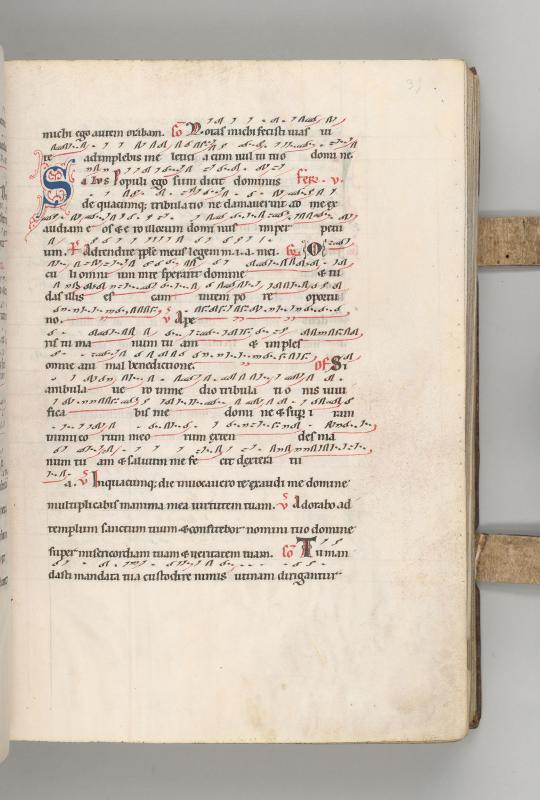 michi ego autem orabam. Co Notas michi fecisti uias ui
te adimplebis me leticia cum uultu tuo domine
Salus populi ego sum dicit dominus
de quacumque tribulatione clamauerint ad me ex
audiam eos et ero illorum dominus in perpetu
um. Ps Adtendite popule meus legem m. Gr O
culi omnium in te sperant domine et tu
das illis escam in tempore oportu
no. V Ape
ris tu manum tuam et imples
omne animal benedictione. OF Si
ambulauero in medio tribulationis uiui
ficabis me domine et super iram
inimicorum meorum exten des ma
num tuam et saluum me fecit dextera tu
a. V Inquacumque die inuocauero te exaudi me domine
multiplicabis in anima mea uirtutem tuam. V Adorabo ad
templum sanctum tuum et confitebor nomini tuo domine
super misericordiam tuam et ueritatem tuam. Co Tu man
dasti mandata tua custodire nimis utinam dirigantur